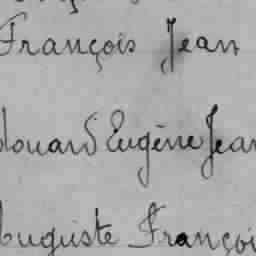 François Jean
douard Eugène Jean
Auguste Françoi